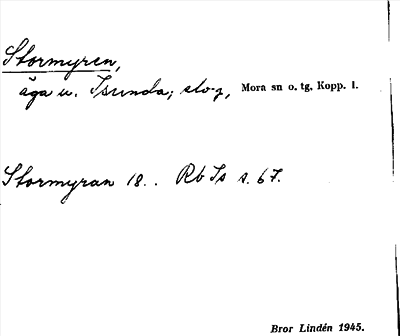 Stormyren,
äga u. Isunda; slogg, Mora sn o. tg, Kopp. l.
Stormyran 18.. Rb Is s. 67.
Bror Lindén 1945.